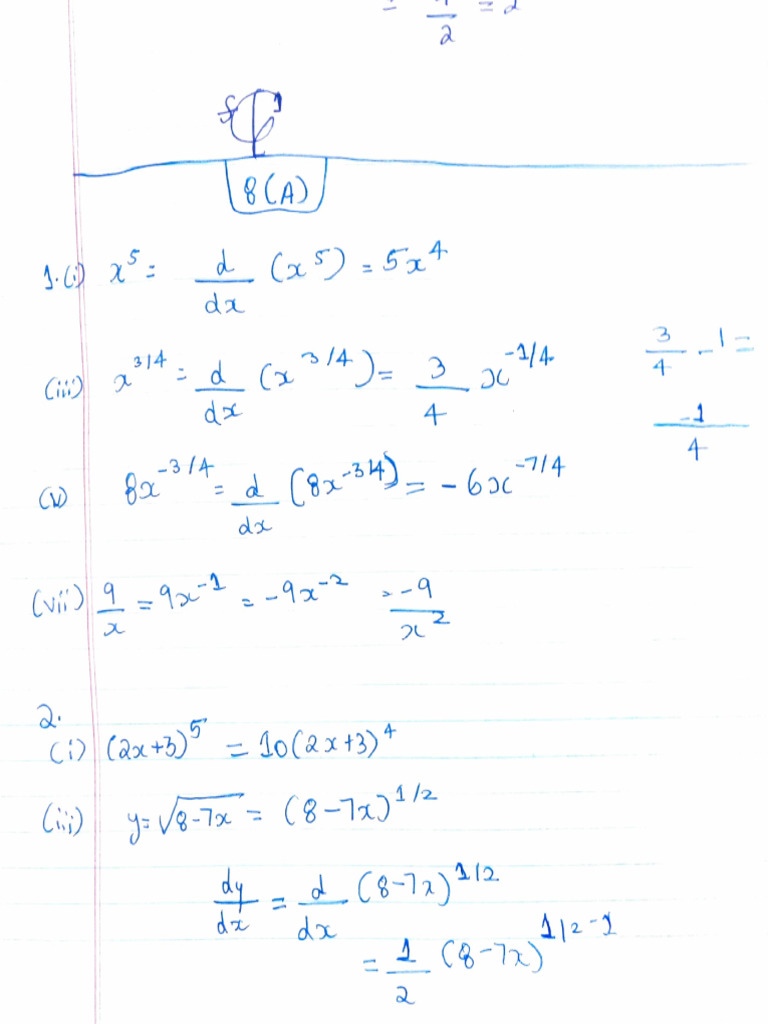 = — = 2
2
8(A)
1.(i) x^5 = d/dx (x^5) = 5x^4
(iii) x^3/4 = d/dx (x^3/4) = 3/4 x^-1/4
3/4 - 1 =
-1/4
(v) 8x^-3/4 = d/dx (8x^-3/4) = -6x^-7/4
(vii) 9/x = 9x^-1 = -9x^-2 = -9/x^2
2.
(i) (2x+3)^5 = 10(2x+3)^4
(iii) y = √8-7x = (8-7x)^1/2
dy/dx = d/dx (8-7x)^1/2
= 1/2 (8-7x)^1/2-1